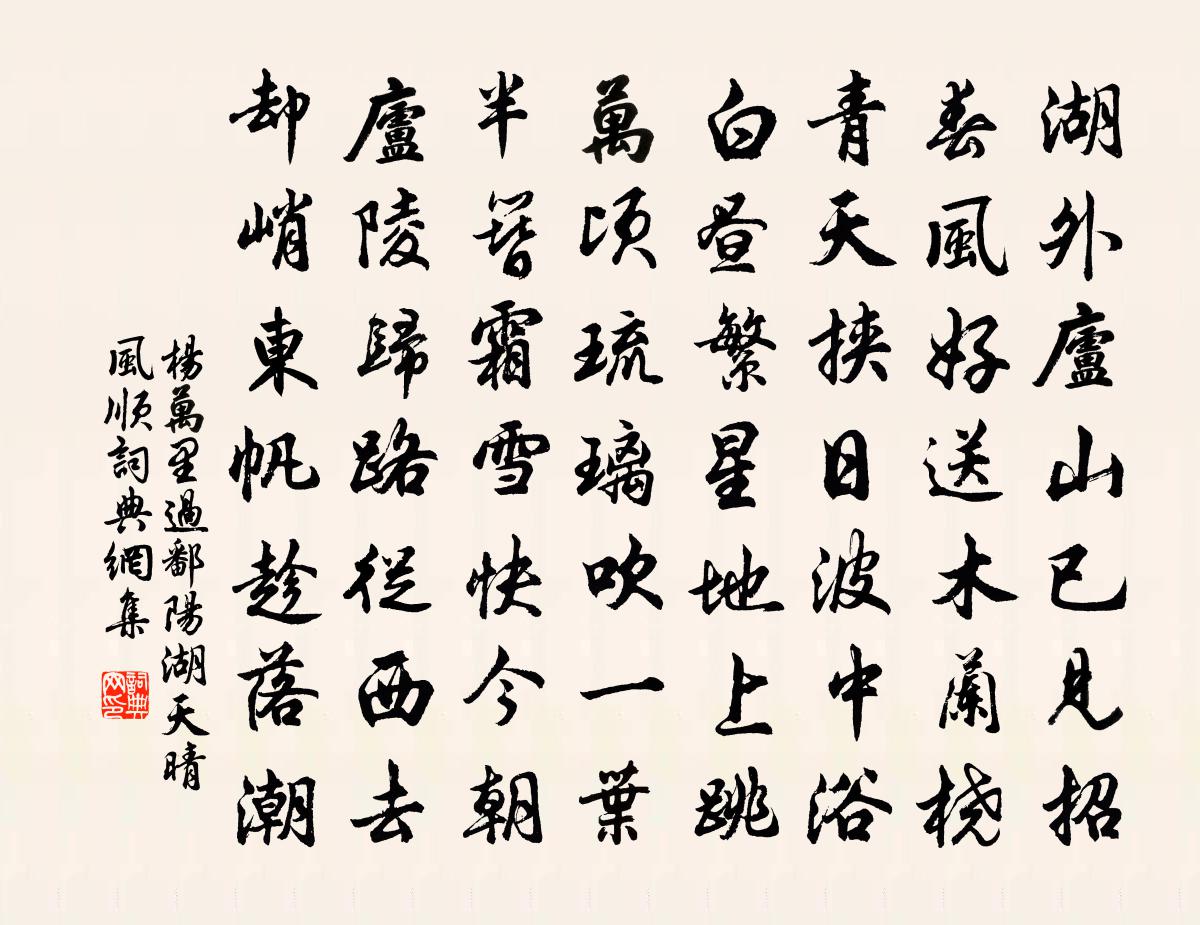 湖外廬山已見招
春風好送木蘭橈
青天挾日波中浴
白晝繁星地上跳
萬頃琉璃吹一葉
半簪霜雪快今朝
廬陵歸路從西去
却峭東帆趁落潮
楊萬里過鄱陽湖天晴
風順詞典網集
詞典网印